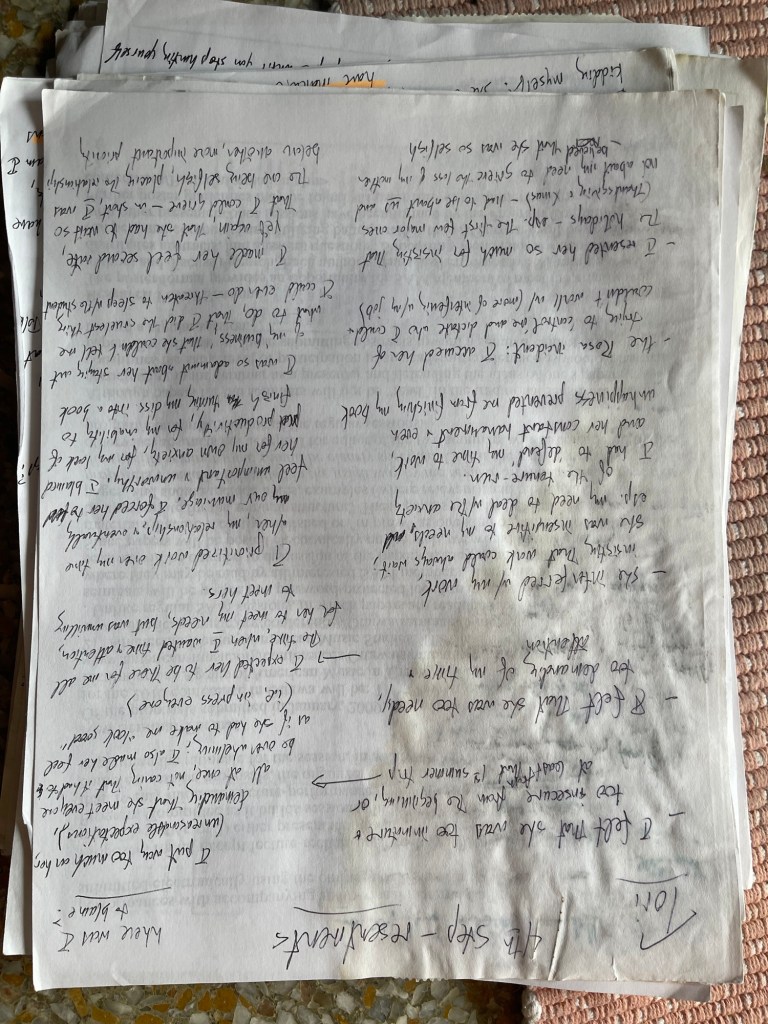 Tori
4th step – resentments
where was I
to blame?
– I felt that she was too immature &
too insecure from the beginning, or
at least that 1st summer trip
I put way too much on her,
(unreasonable expectations),
demanding that she meet everyone
all at once, not caring that it had to
be overwhelming; I also made her feel
as if she had to make me "look good"
(i.e., impress everyone)
– I felt that she was too needy,
too demanding of my time &
attention
I expected her to be there for me all
the time, when I wanted time & attention,
for her to meet my needs, but was unwilling
to meet hers
– she interferred w/ my work,
insisting that work could always wait;
she was insensitive to my needs,
esp. my need to deal w/ the anxiety
of the tenure run.
I had to "defend" my time to work,
and her constant harassment & even
unhappiness prevented me from finishing my book
I prioritized work over my time
when, my relationship, & eventually
our marriage. I forced her to
feel unimportant & unworthy. I blamed
her for my own anxiety, for my lack of
productivity, for my inability to
finish turning my diss into a book
– the Rosa incident: I accused her of
trying to control me and dictate who I could
couldn't work w/ (more of interfering w/ my job)
I was so adamant about her staying out
of my business, that she couldn't tell me
what to do, that I did the cruelest thing
I could ever do – threaten to sleep w/ the student
– I resented her so much for insisting that
the holidays – esp. the first few major ones
(Thanksgiving & Xmas) – had to be about us and
not about my need to grieve the loss of my mother
– believed that she was so selfish
I made her feel second rate,
yet again that she had to wait so
that I could grieve – in short I was
the one being selfish, placing the relationship
below another, more important priority
kidding myself. she
have
until you stop hurting yourself